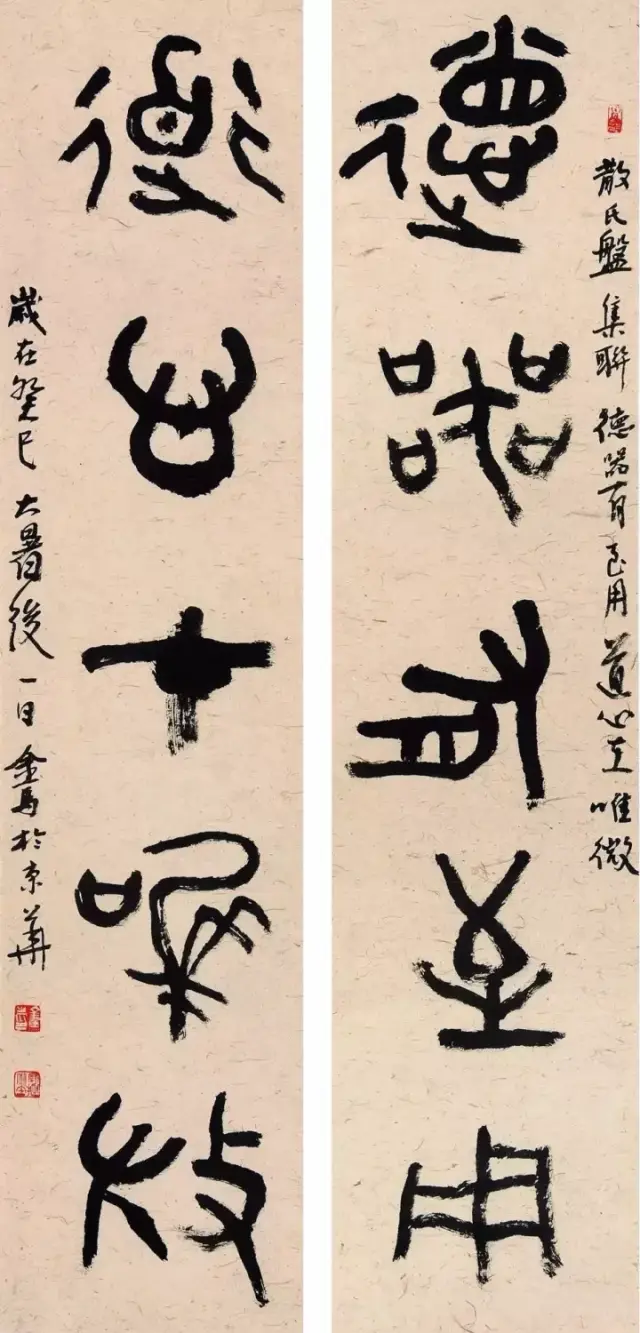 散氏盤集聯 德器有至用 道心在唯微
德器有至用
道心在唯微
歲在癸巳大暑後一日金馬於京華